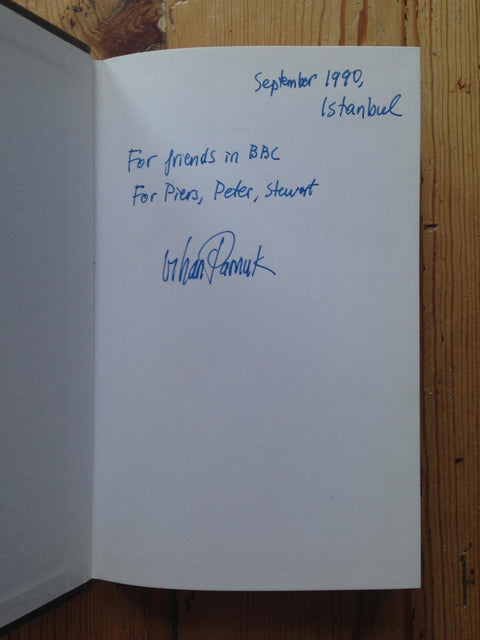 September 1990,
Istanbul
For friends in BBC
For Piers, Peter, Stewart
Orhan Pamuk